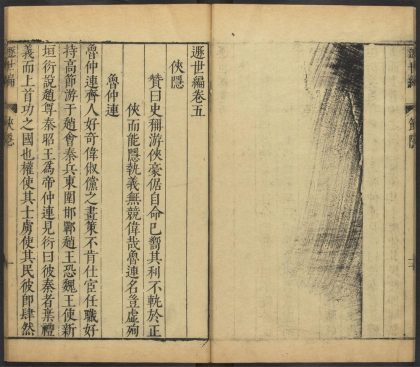 遯世編卷五
俠隱
贊曰史稱游俠豪倨自命已嚮其利不軌於正
俠而能隱執義無競偉哉魯連名豈虛殉
魯仲連
魯仲連齊人好奇偉俶儻之畫策不肯仕宦任職好
持高節游于趙會秦兵東圍邯鄲趙王恐魏王使新
垣衍說趙尊秦昭王為帝仲連見衍曰彼秦者棄禮
義而上首功之國也權使其士虜使其民彼即肆然
遯世編 俠隱